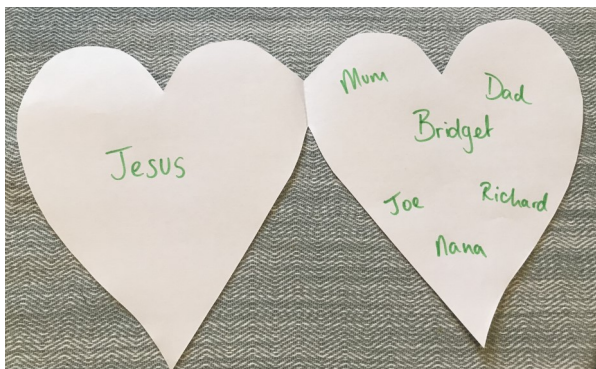 Jesus
Mum
Dad
Bridget
Joe
Richard
Nana